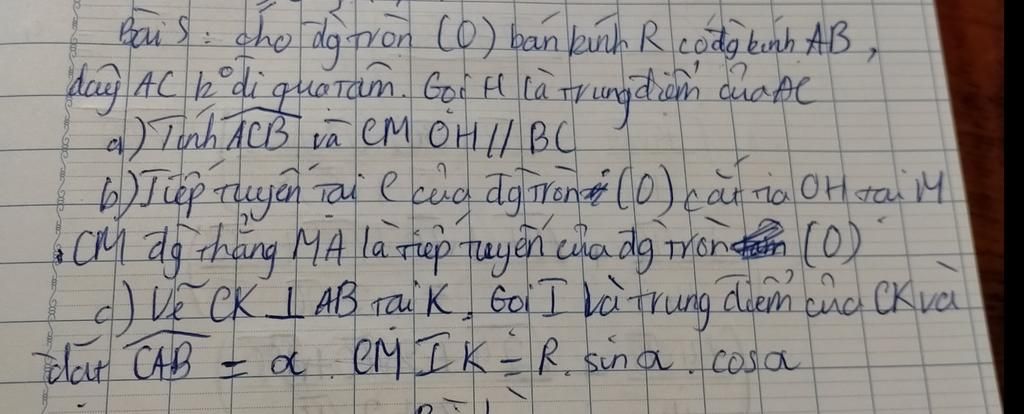 Bài 5: cho đg tròn (O) bán kính R có đg kính AB,
dây AC k° đi qua tâm. Gọi H là trung điểm của AC
a) Tính ACB và CM OH // BC
b) Tiếp tuyến tại C của đg tròn (O) cắt tia OH tại M
. CM đg thẳng MA là tiếp tuyến của đg tròn (O)
c) Vẽ CK ⊥ AB tại K. Gọi I là trung điểm của CK và
đặt CAB = α. CM IK = R. sinα. cosα